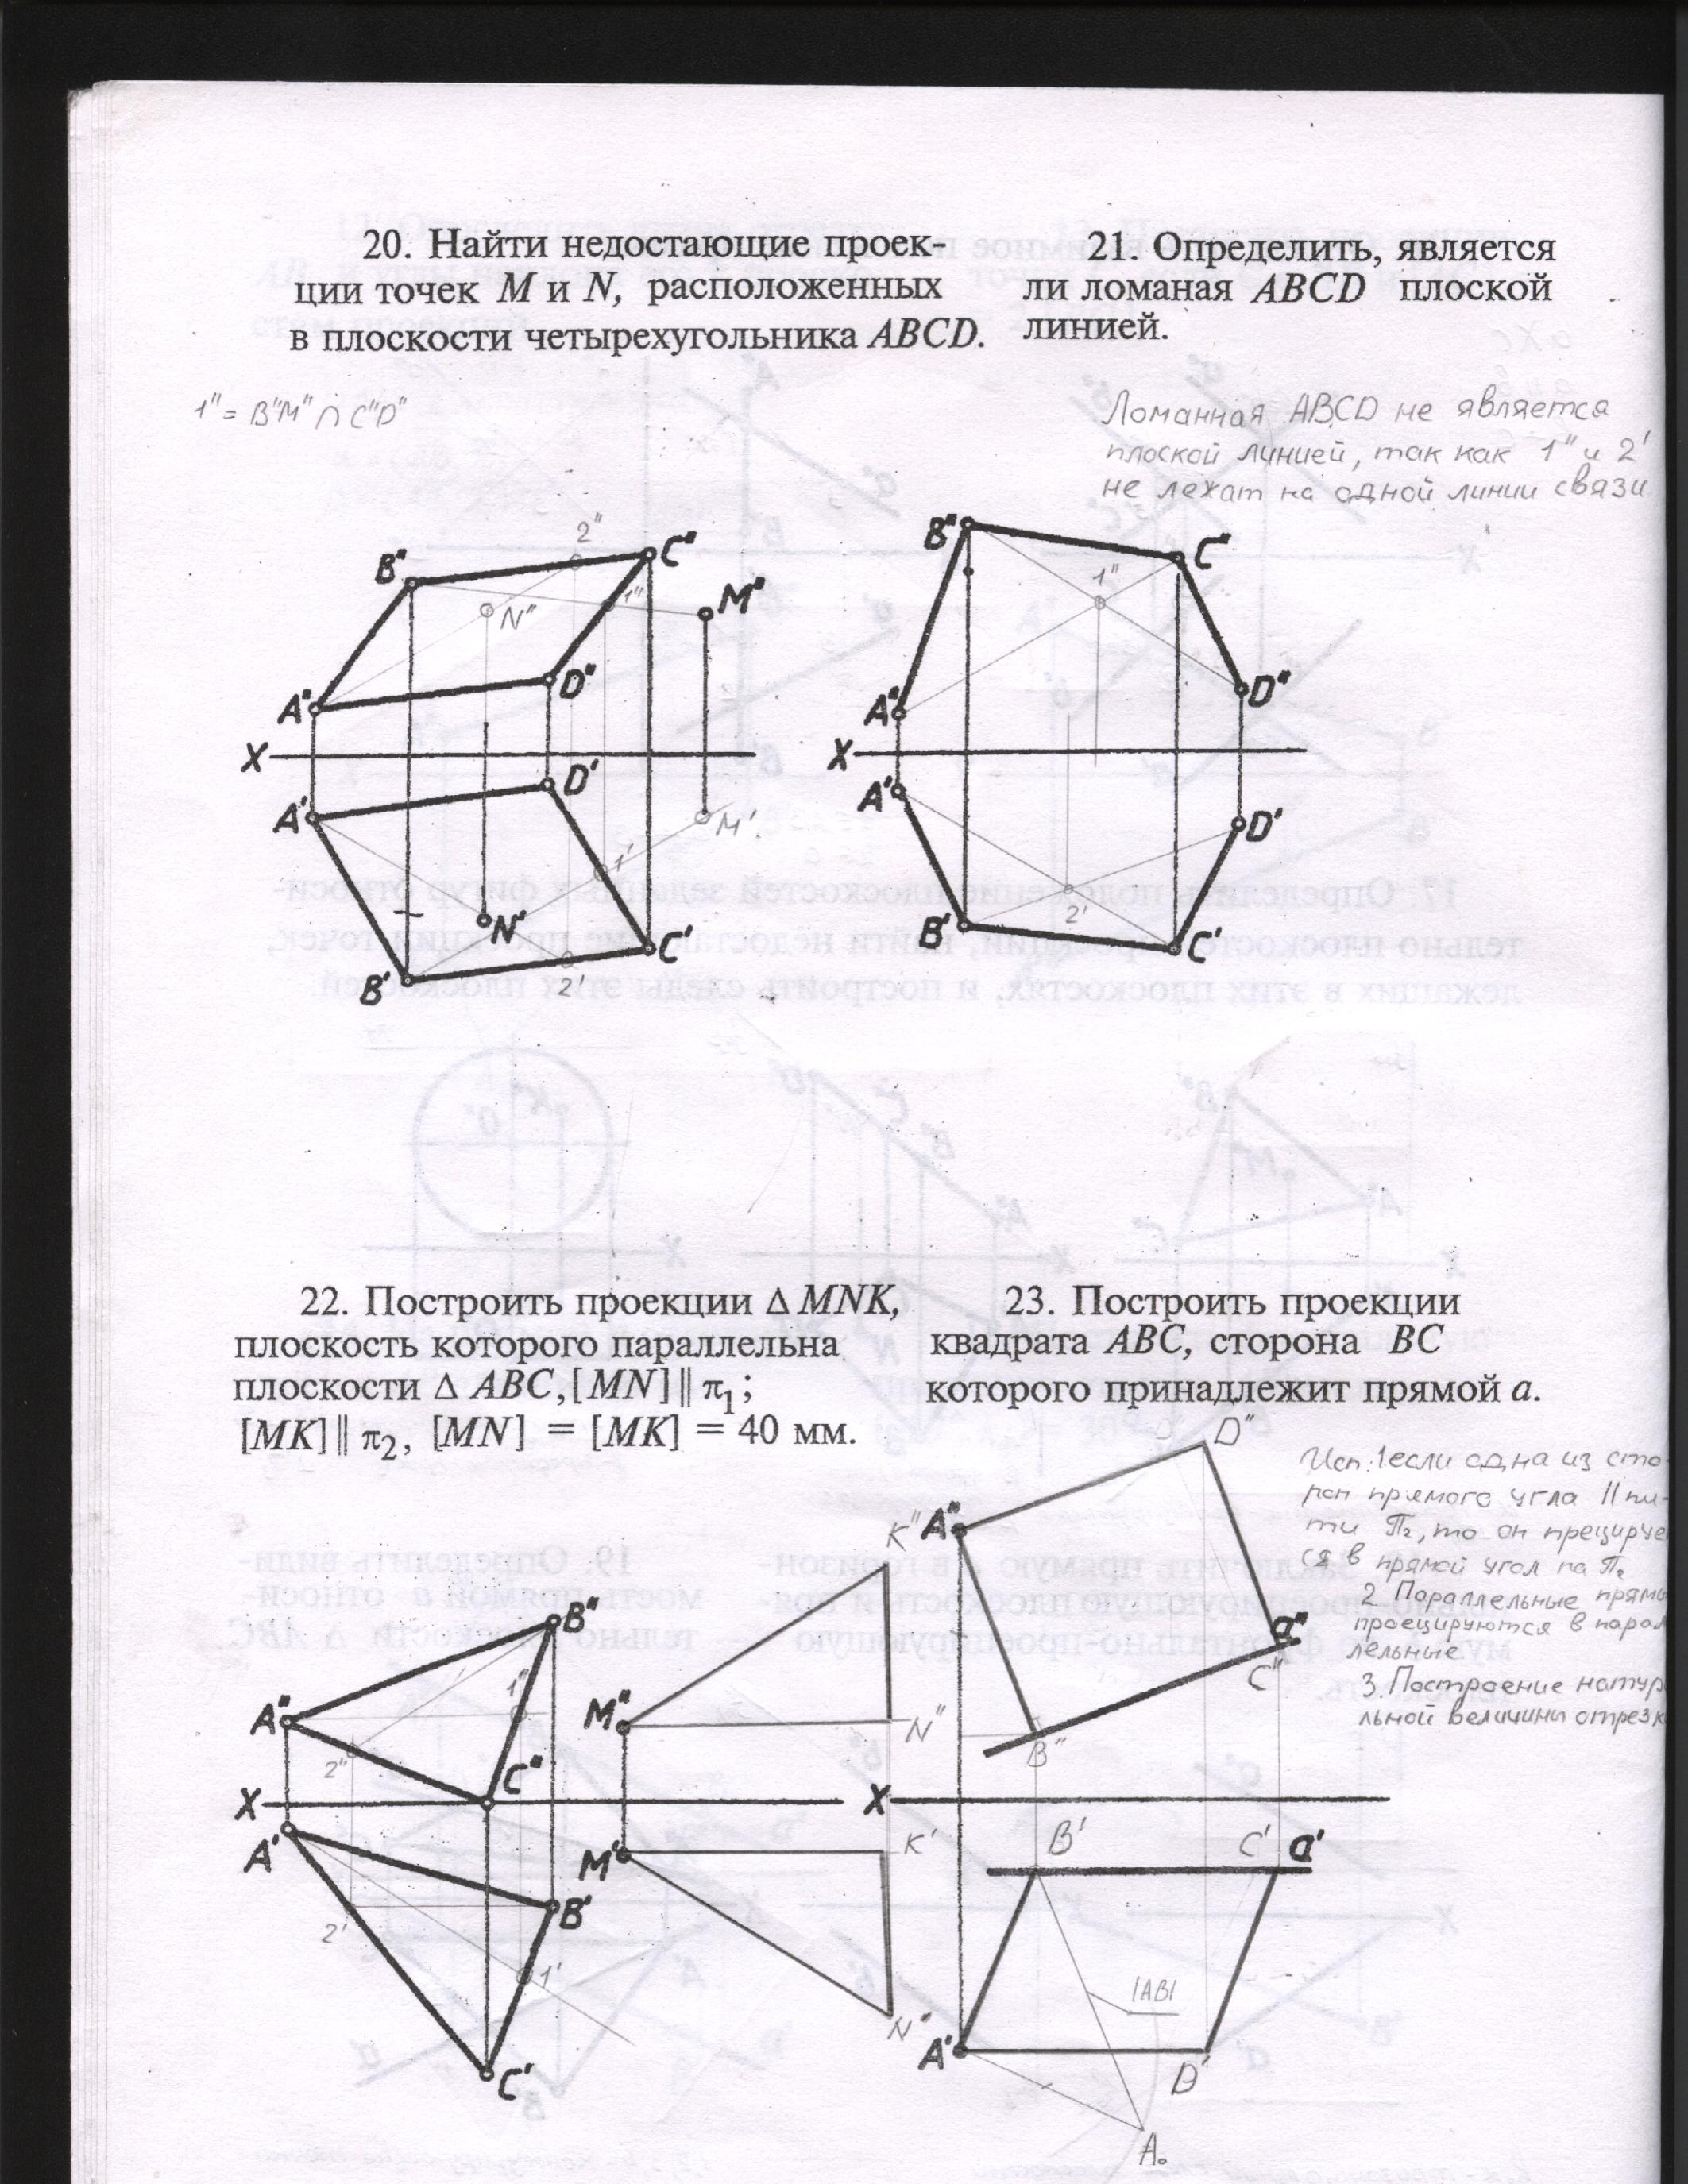 20. Найти недостающие проек-
ции точек M и N, расположенных
в плоскости четырехугольника ABCD.
21. Определить, является
ли ломаная ABCD плоской
линией.
1" = B"M" ∩ C"D"
Ломанная ABCD не является
плоской линией, так как 1" и 2'
не лежат на одной линии связи
2"
B" C"
N" 1" M"
A" D"
X
A' D'
1' M'
N'
B' 2' C'
B" C"
1"
A" D"
X
A' D'
2'
B' C'
22. Построить проекции Δ MNK,
плоскость которого параллельна
плоскости Δ ABC, [MN] || π1;
[MK] || π2, [MN] = [MK] = 40 мм.
23. Построить проекции
квадрата ABC, сторона BC
которого принадлежит прямой a.
Исп: 1 если одна из сто-
рон прямого угла || пл-
ти П2, то он прецируе
ся в прямой угол на П2
2 Параллельные прямы
проецируются в парал
лельные
3. Построение натур
льной величины отрезк
K"
B"
A" 1" M" N"
2" C"
X
A' M' K'
B'
2' 1'
N'
C'
D"
A"
a"
C"
B"
X
B' C' a'
|AB|
A' D'
A₀